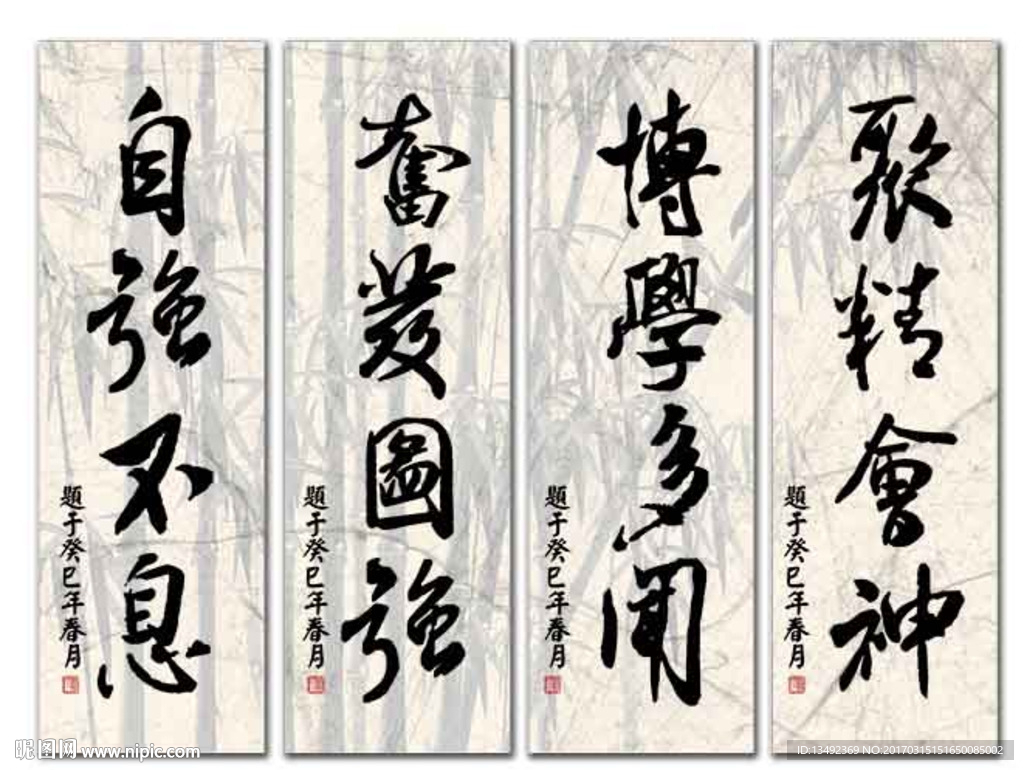 聚精會神
題于癸巳年春月
博學多聞
題于癸巳年春月
奮發圖強
題于癸巳年春月
自強不息
題于癸巳年春月
昵图网 www.nipic.com
ID:13492369 NO:20170315151650085002